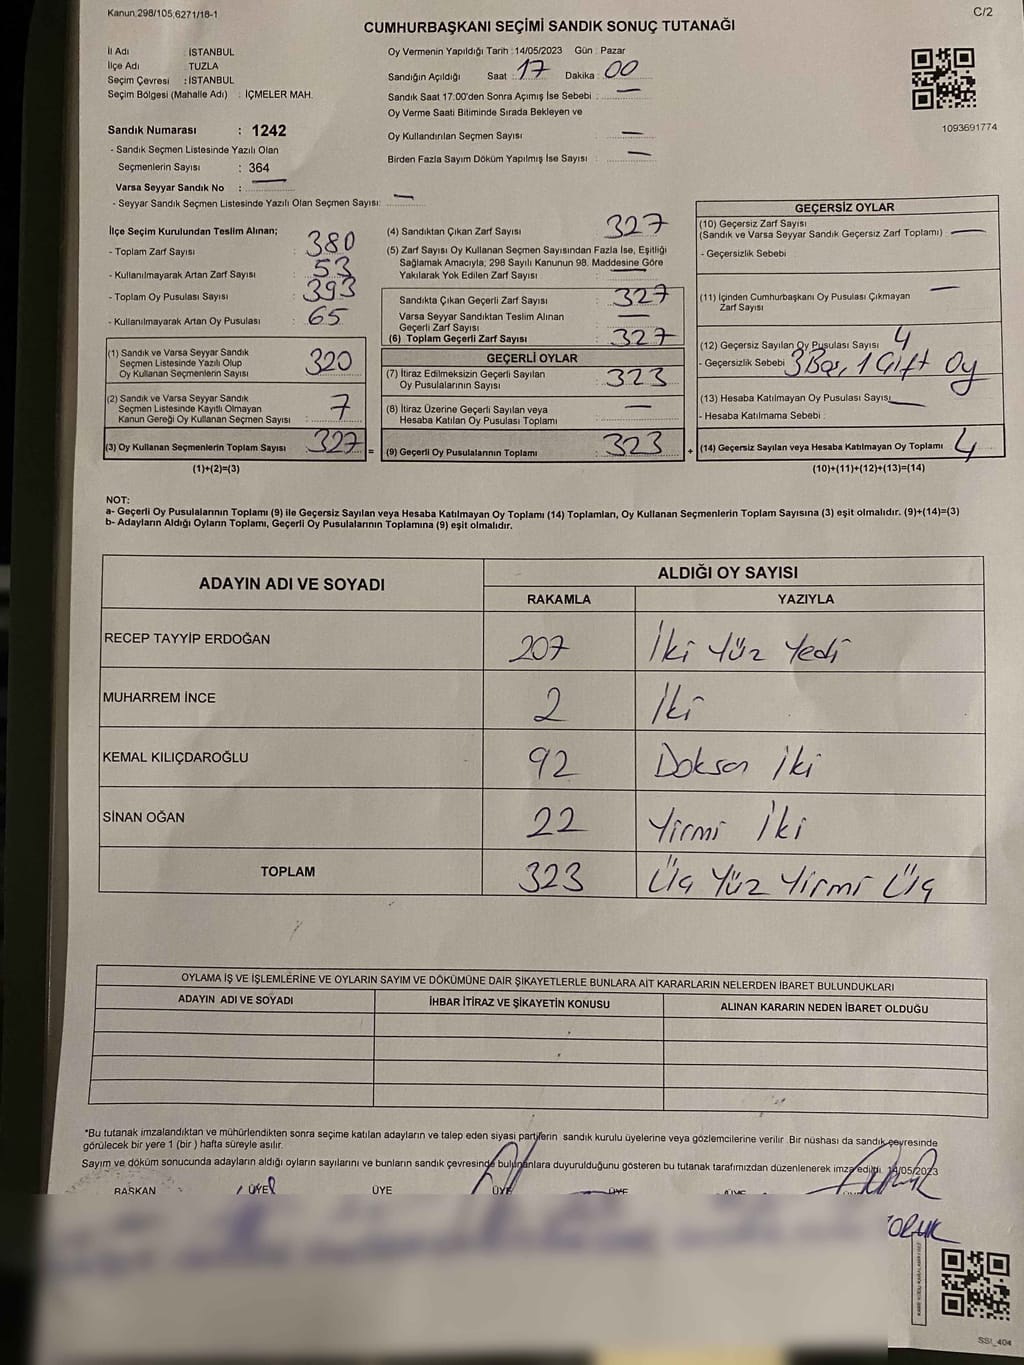 Kanun 298/105,6271/18-1
C/2
CUMHURBAŞKANI SEÇİMİ SANDIK SONUÇ TUTANAĞI
İl Adı : İSTANBUL
İlçe Adı : TUZLA
Seçim Çevresi : İSTANBUL
Seçim Bölgesi (Mahalle Adı) : İÇMELER MAH.
Sandık Numarası : 1242
- Sandık Seçmen Listesinde Yazılı Olan
Seçmenlerin Sayısı : 364
Varsa Seyyar Sandık No : —
- Seyyar Sandık Seçmen Listesinde Yazılı Olan Seçmen Sayısı: —
Oy Vermenin Yapıldığı Tarih : 14/05/2023 Gün : Pazar
Sandığın Açıldığı Saat : 17 Dakika : 00
Sandık Saat 17:00'den Sonra Açımış İse Sebebi : —
Oy Verme Saati Bitiminde Sırada Bekleyen ve
Oy Kullandırılan Seçmen Sayısı : —
Birden Fazla Sayım Döküm Yapılmış İse Sayısı : —
1093691774
İlçe Seçim Kurulundan Teslim Alınan;
- Toplam Zarf Sayısı : 380
- Kullanılmayarak Artan Zarf Sayısı : 53
- Toplam Oy Pusulası Sayısı : 393
- Kullanılmayarak Artan Oy Pusulası : 65
(1) Sandık ve Varsa Seyyar Sandık
Seçmen Listesinde Yazılı Olup
Oy Kullanan Seçmenlerin Sayısı : 320
(2) Sandık ve Varsa Seyyar Sandık
Seçmen Listesinde Kayıtlı Olmayan
Kanun Gereği Oy Kullanan Seçmen Sayısı : 7
(3) Oy Kullanan Seçmenlerin Toplam Sayısı : 327 =
(1)+(2)=(3)
(4) Sandıktan Çıkan Zarf Sayısı : 327
(5) Zarf Sayısı Oy Kullanan Seçmen Sayısından Fazla İse, Eşitliği
Sağlamak Amacıyla, 298 Sayılı Kanunun 98. Maddesine Göre
Yakılarak Yok Edilen Zarf Sayısı : —
Sandıkta Çıkan Geçerli Zarf Sayısı : 327
Varsa Seyyar Sandıktan Teslim Alınan
Geçerli Zarf Sayısı : —
(6) Toplam Geçerli Zarf Sayısı : 327
GEÇERLİ OYLAR
(7) İtiraz Edilmeksizin Geçerli Sayılan
Oy Pusulalarının Sayısı : 323
(8) İtiraz Üzerine Geçerli Sayılan veya
Hesaba Katılan Oy Pusulası Toplamı : —
(9) Geçerli Oy Pusulalarının Toplamı : 323 +
GEÇERSİZ OYLAR
(10) Geçersiz Zarf Sayısı
(Sandık ve Varsa Seyyar Sandık Geçersiz Zarf Toplamı) : —
- Geçersizlik Sebebi :
(11) İçinden Cumhurbaşkanı Oy Pusulası Çıkmayan
Zarf Sayısı : —
(12) Geçersiz Sayılan Oy Pusulası Sayısı : 4
- Geçersizlik Sebebi : 3 Boş, 1 Çift Oy
(13) Hesaba Katılmayan Oy Pusulası Sayısı : —
- Hesaba Katılmama Sebebi :
(14) Geçersiz Sayılan veya Hesaba Katılmayan Oy Toplamı : 4
(10)+(11)+(12)+(13)=(14)
NOT:
a- Geçerli Oy Pusulalarının Toplamı (9) ile Geçersiz Sayılan veya Hesaba Katılmayan Oy Toplamı (14) Toplamları, Oy Kullanan Seçmenlerin Toplam Sayısına (3) eşit olmalıdır. (9)+(14)=(3)
b- Adayların Aldığı Oyların Toplamı, Geçerli Oy Pusulalarının Toplamına (9) eşit olmalıdır.
ADAYIN ADI VE SOYADI
ALDIĞI OY SAYISI
RAKAMLA YAZIYLA
RECEP TAYYİP ERDOĞAN 207 İki Yüz Yedi
MUHARREM İNCE 2 İki
KEMAL KILIÇDAROĞLU 92 Doksan İki
SİNAN OĞAN 22 Yirmi İki
TOPLAM 323 Üç Yüz Yirmi Üç
OYLAMA İŞ VE İŞLEMLERİNE VE OYLARIN SAYIM VE DÖKÜMÜNE DAİR ŞİKAYETLERLE BUNLARA AİT KARARLARIN NELERDEN İBARET BULUNDUKLARI
ADAYIN ADI VE SOYADI İHBAR İTİRAZ VE ŞİKAYETİN KONUSU ALINAN KARARIN NEDEN İBARET OLDUĞU
*Bu tutanak imzalandıktan ve mühürlendikten sonra seçime katılan adayların ve talep eden siyasi partilerin sandık kurulu üyelerine veya gözlemcilerine verilir .Bir nüshası da sandık çevresinde
görülecek bir yere 1 (bir ) hafta süreyle asılır.
Sayım ve döküm sonucunda adayların aldığı oyların sayılarını ve bunların sandık çevresinde bulunanlara duyurulduğunu gösteren bu tutanak tarafımızdan düzenlenerek imza edildi. 14/05/2023
BAŞKAN ÜYE ÜYE ÜYE ÜYE ÜYE
SSI_404